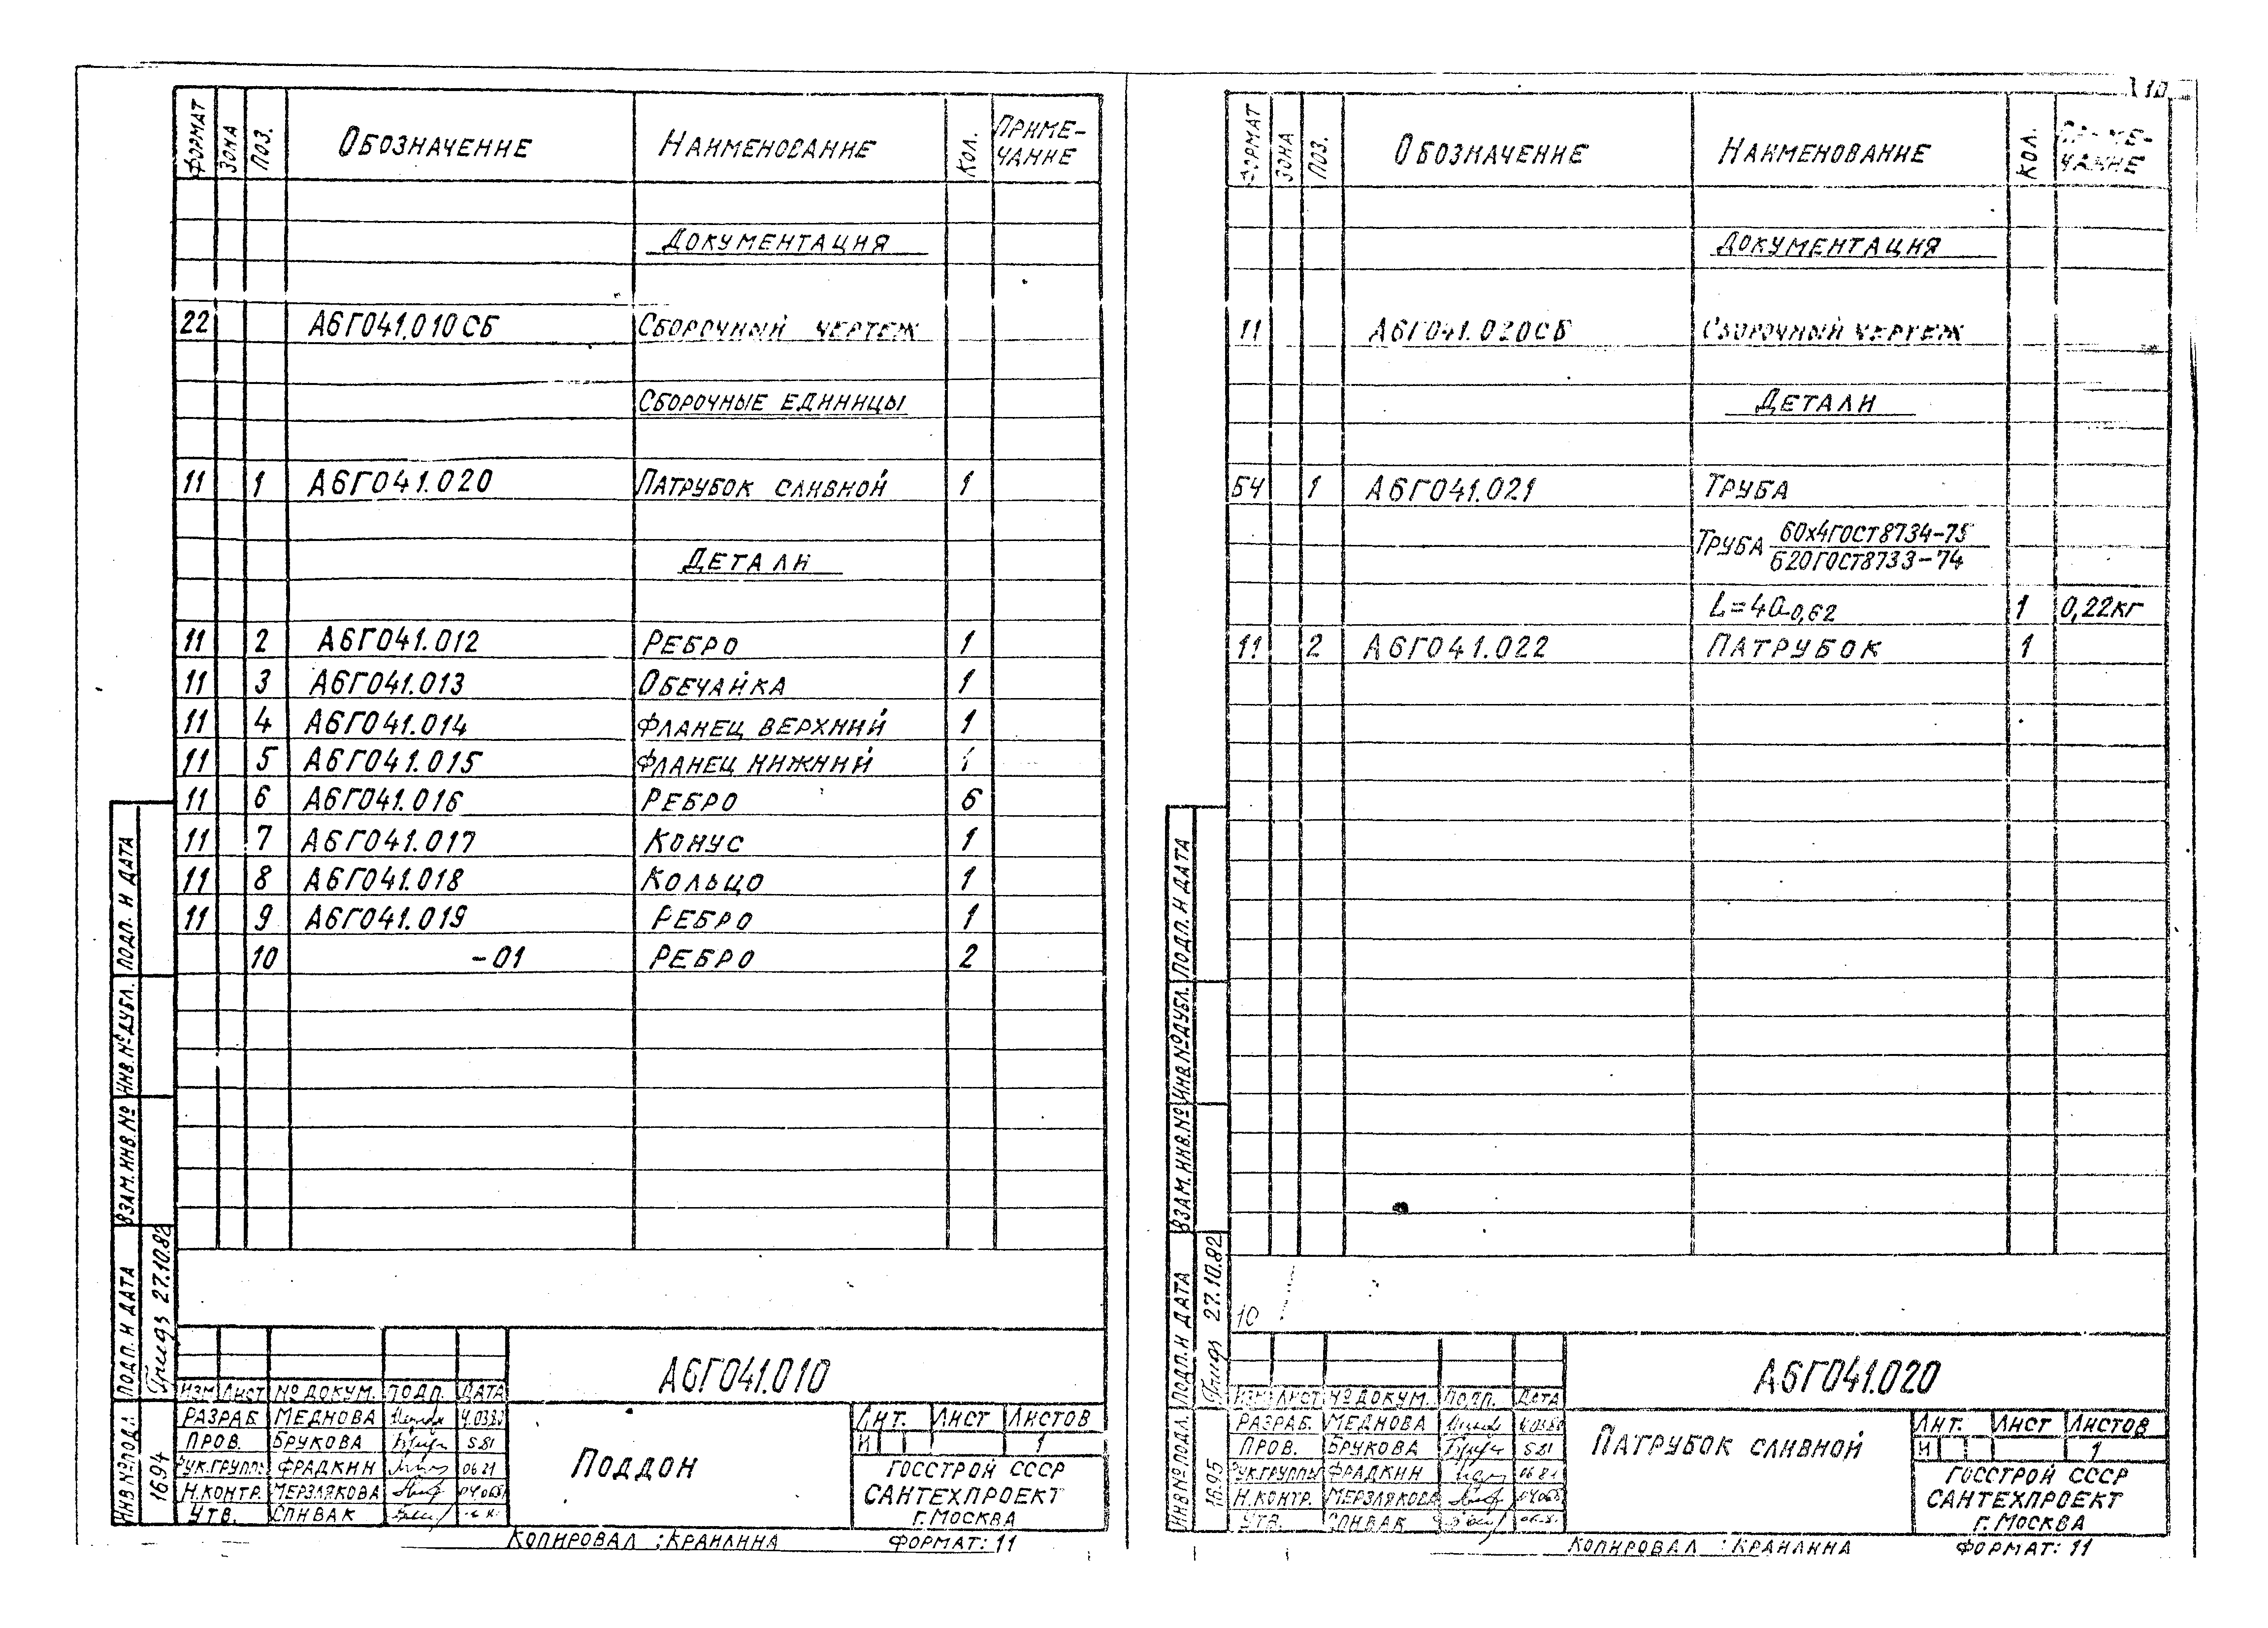 ФОРМАТ ЗОНА ПОЗ. ОБОЗНАЧЕНИЕ НАИМЕНОВАНИЕ КОЛ. ПРИМЕ-
ЧАНИЕ
ДОКУМЕНТАЦИЯ
22 А6Г041.010СБ СБОРОЧНЫЙ ЧЕРТЕЖ
СБОРОЧНЫЕ ЕДИНИЦЫ
11 1 А6Г041.020 ПАТРУБОК СЛИВНОЙ 1
ДЕТАЛИ
11 2 А6Г041.012 РЕБРО 1
11 3 А6Г041.013 ОБЕЧАЙКА 1
11 4 А6Г041.014 ФЛАНЕЦ ВЕРХНИЙ 1
11 5 А6Г041.015 ФЛАНЕЦ НИЖНИЙ 1
11 6 А6Г041.016 РЕБРО 6
11 7 А6Г041.017 КОНУС 1
11 8 А6Г041.018 КОЛЬЦО 1
11 9 А6Г041.019 РЕБРО 1
10 -01 РЕБРО 2
ПОДП. И ДАТА
ИНВ.№ДУБЛ.
ВЗАМ.ИНВ.№
ПОДП. И ДАТА 27.10.82
ИНВ№ПОДЛ 1694
ИЗМ ЛИСТ № ДОКУМ. ПОДП. ДАТА
А6Г041.010
РАЗРАБ. МЕДНОВА
ПРОВ. БРУКОВА 5.81
РУК.ГРУППЫ ФРАДКИН
Н.КОНТР. МЕРЗЛЯКОВА
УТВ. СПИВАК
ПОДДОН
ЛИТ. ЛИСТ ЛИСТОВ
И 1
ГОССТРОЙ СССР
САНТЕХПРОЕКТ
Г.МОСКВА
КОПИРОВАЛ : КРАИЛИНА ФОРМАТ: 11
10
ФОРМАТ ЗОНА ПОЗ. ОБОЗНАЧЕНИЕ НАИМЕНОВАНИЕ КОЛ. ПРИМЕ-
ЧАНИЕ
ДОКУМЕНТАЦИЯ
11 А6Г041.020СБ СБОРОЧНЫЙ ЧЕРТЕЖ
ДЕТАЛИ
БЧ 1 А6Г041.021 ТРУБА
ТРУБА 60х4ГОСТ8734-75
Б20ГОСТ8733-74
L=40-0,62 1 0,22кг
11 2 А6Г041.022 ПАТРУБОК 1
ПОДП. И ДАТА
ИНВ.№ДУБЛ.
ВЗАМ.ИНВ.№
ПОДП. И ДАТА 27.10.82
ИНВ№ПОДЛ. 1695
10
ИЗМ ЛИСТ № ДОКУМ. ПОДП. ДАТА
А6Г041.020
РАЗРАБ. МЕДНОВА
ПРОВ. БРУКОВА 5.81
РУК.ГРУППЫ ФРАДКИН 06.81
Н.КОНТР. МЕРЗЛЯКОВА
УТВ. СПИВАК
ПАТРУБОК СЛИВНОЙ
ЛИТ. ЛИСТ ЛИСТОВ
И 1
ГОССТРОЙ СССР
САНТЕХПРОЕКТ
Г.МОСКВА
КОПИРОВАЛ : КРАИЛИНА ФОРМАТ: 11